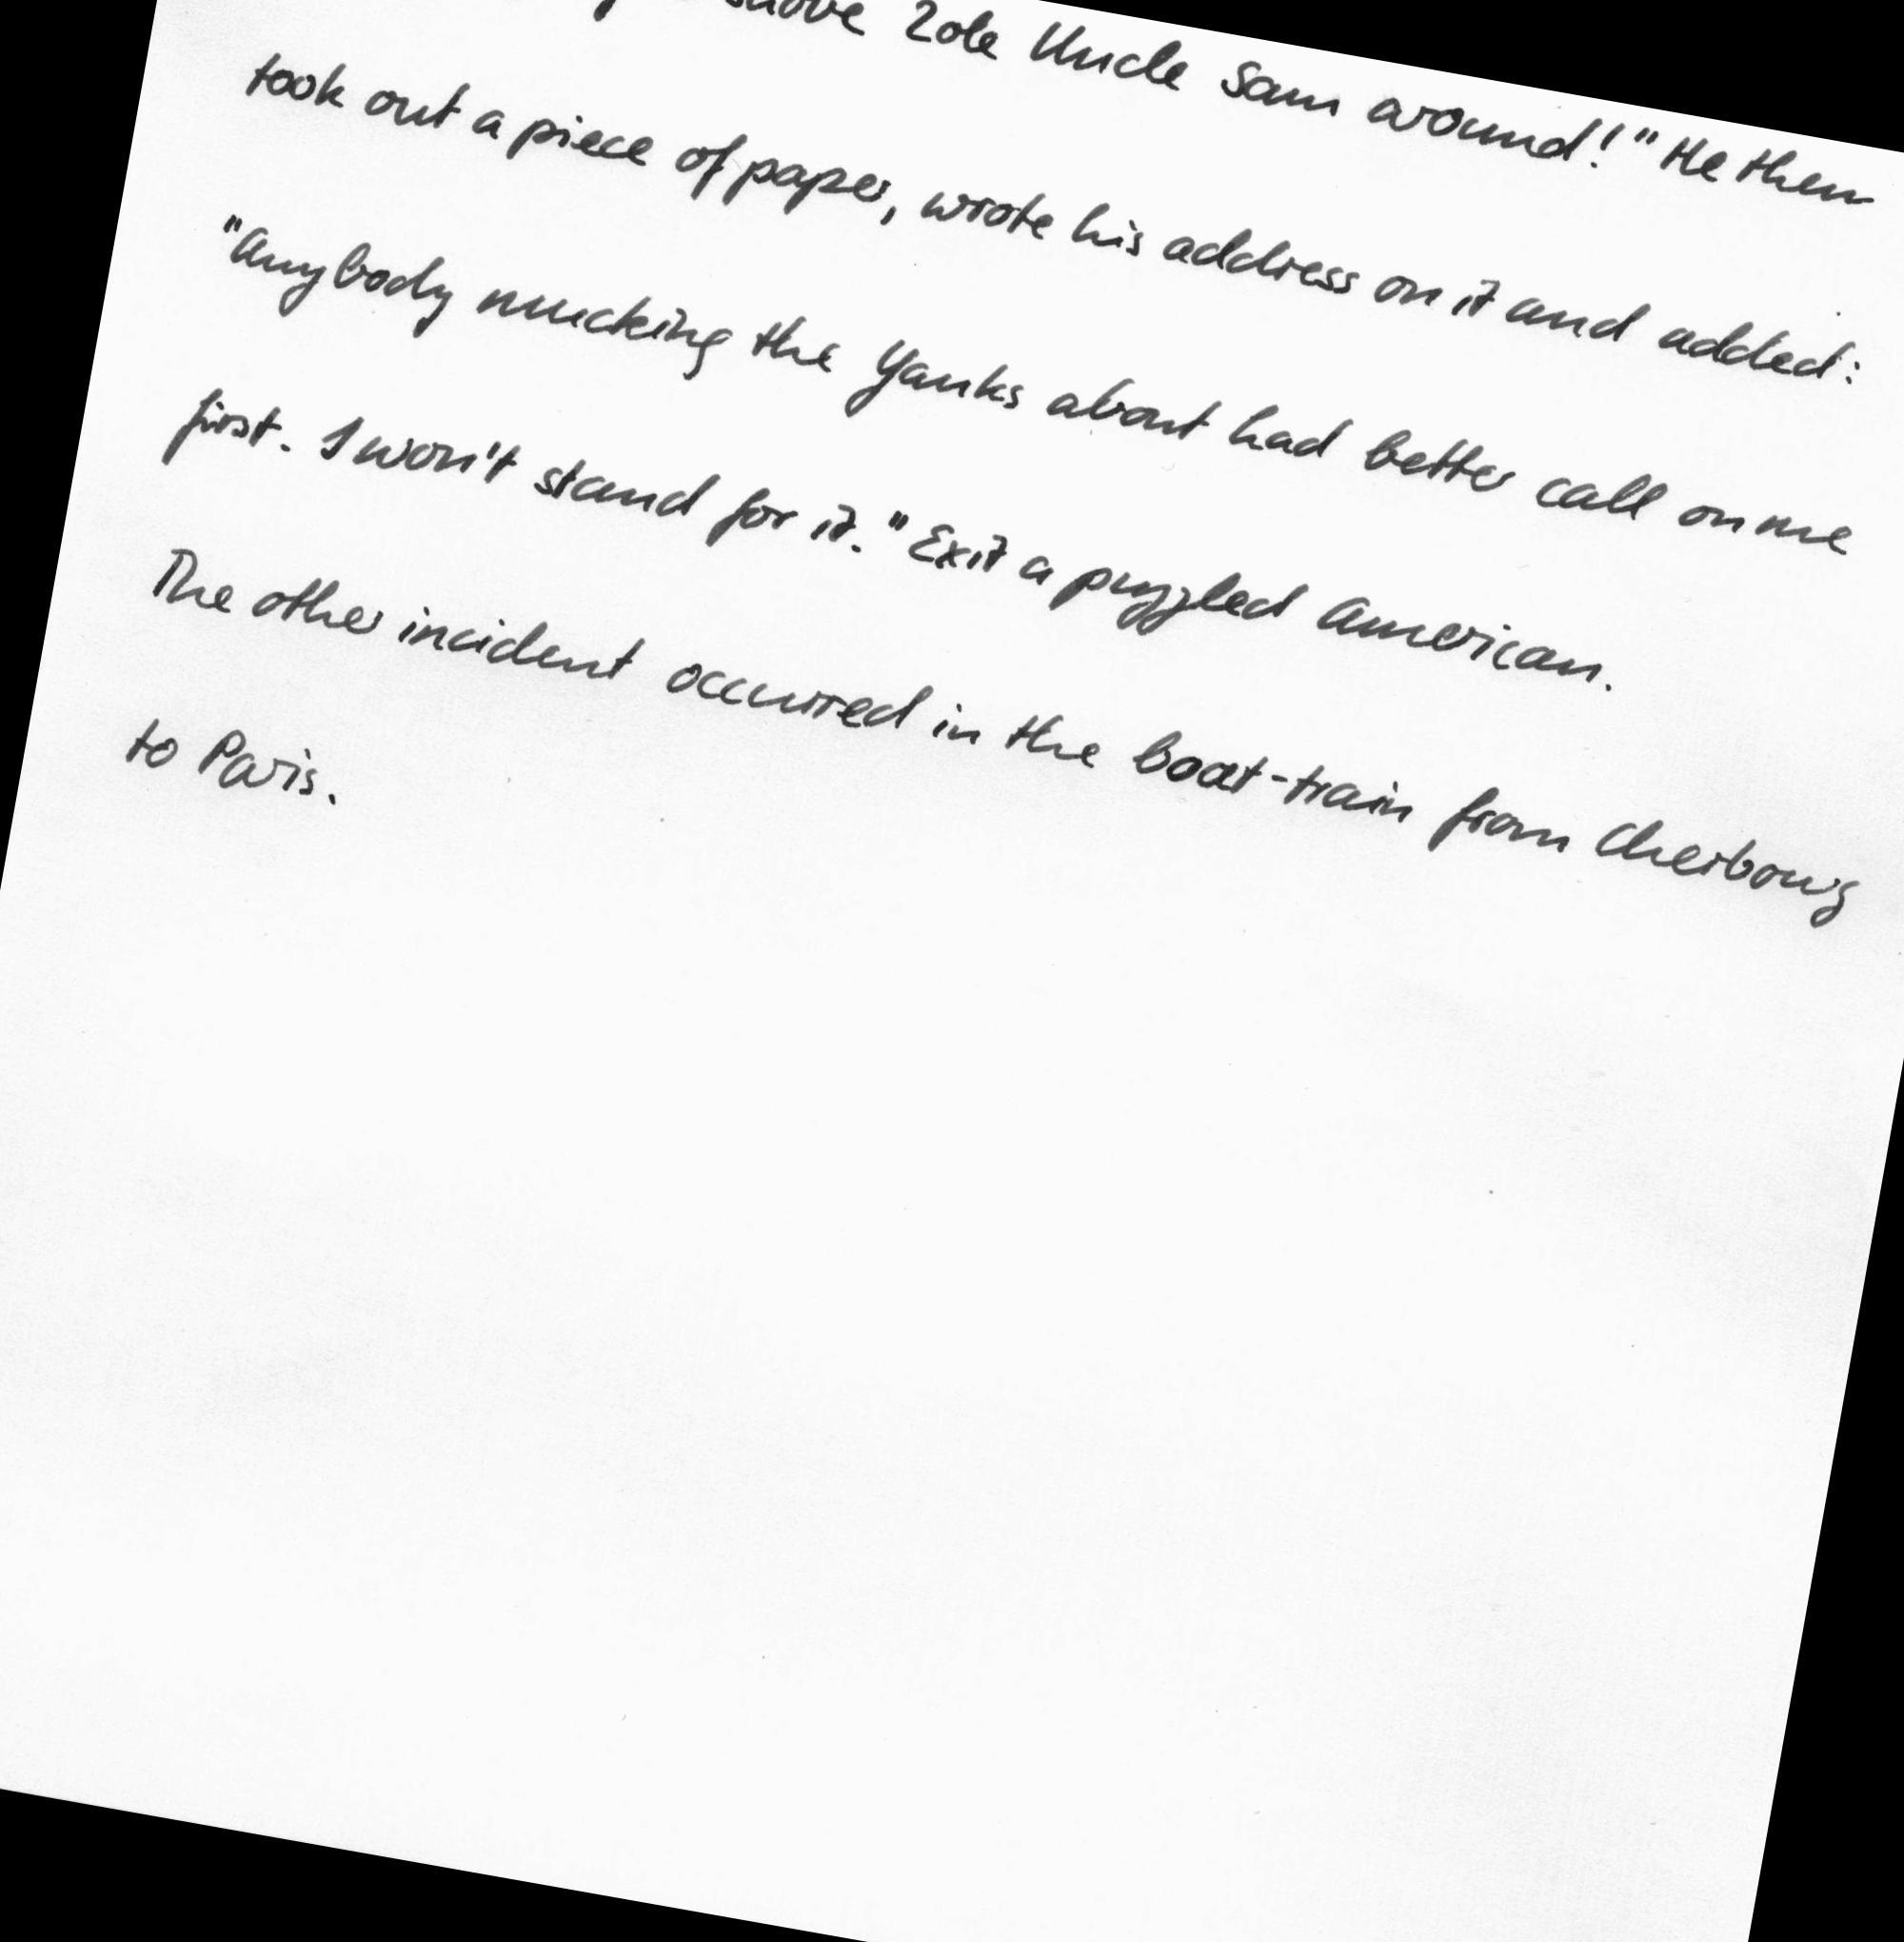 shove 2ole Uncle Sam around!" He then
took out a piece of paper, wrote his address on it and added:
"Anybody mucking the Yanks about had better call on me
first. I won't stand for it." Exit a puzzled American.
The other incident occurred in the boat-train from Cherbourg
to Paris.